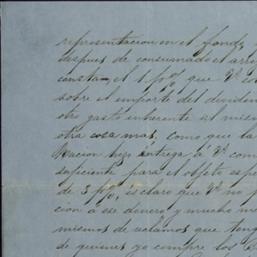 representacion en el fondo,
despues de consumado el arr
consta, el 1 p% que V. co
sobre el importe del dividen
otro gasto inherente al mism
otra cosa mas, como que la
Nacion hizo entrega á V. com
suficiente para el objeto espe
de 3 p%, es claro que V. no p
cion á ese dinero y mucho me
mismos de reclamos que teng
de quienes yo compre los